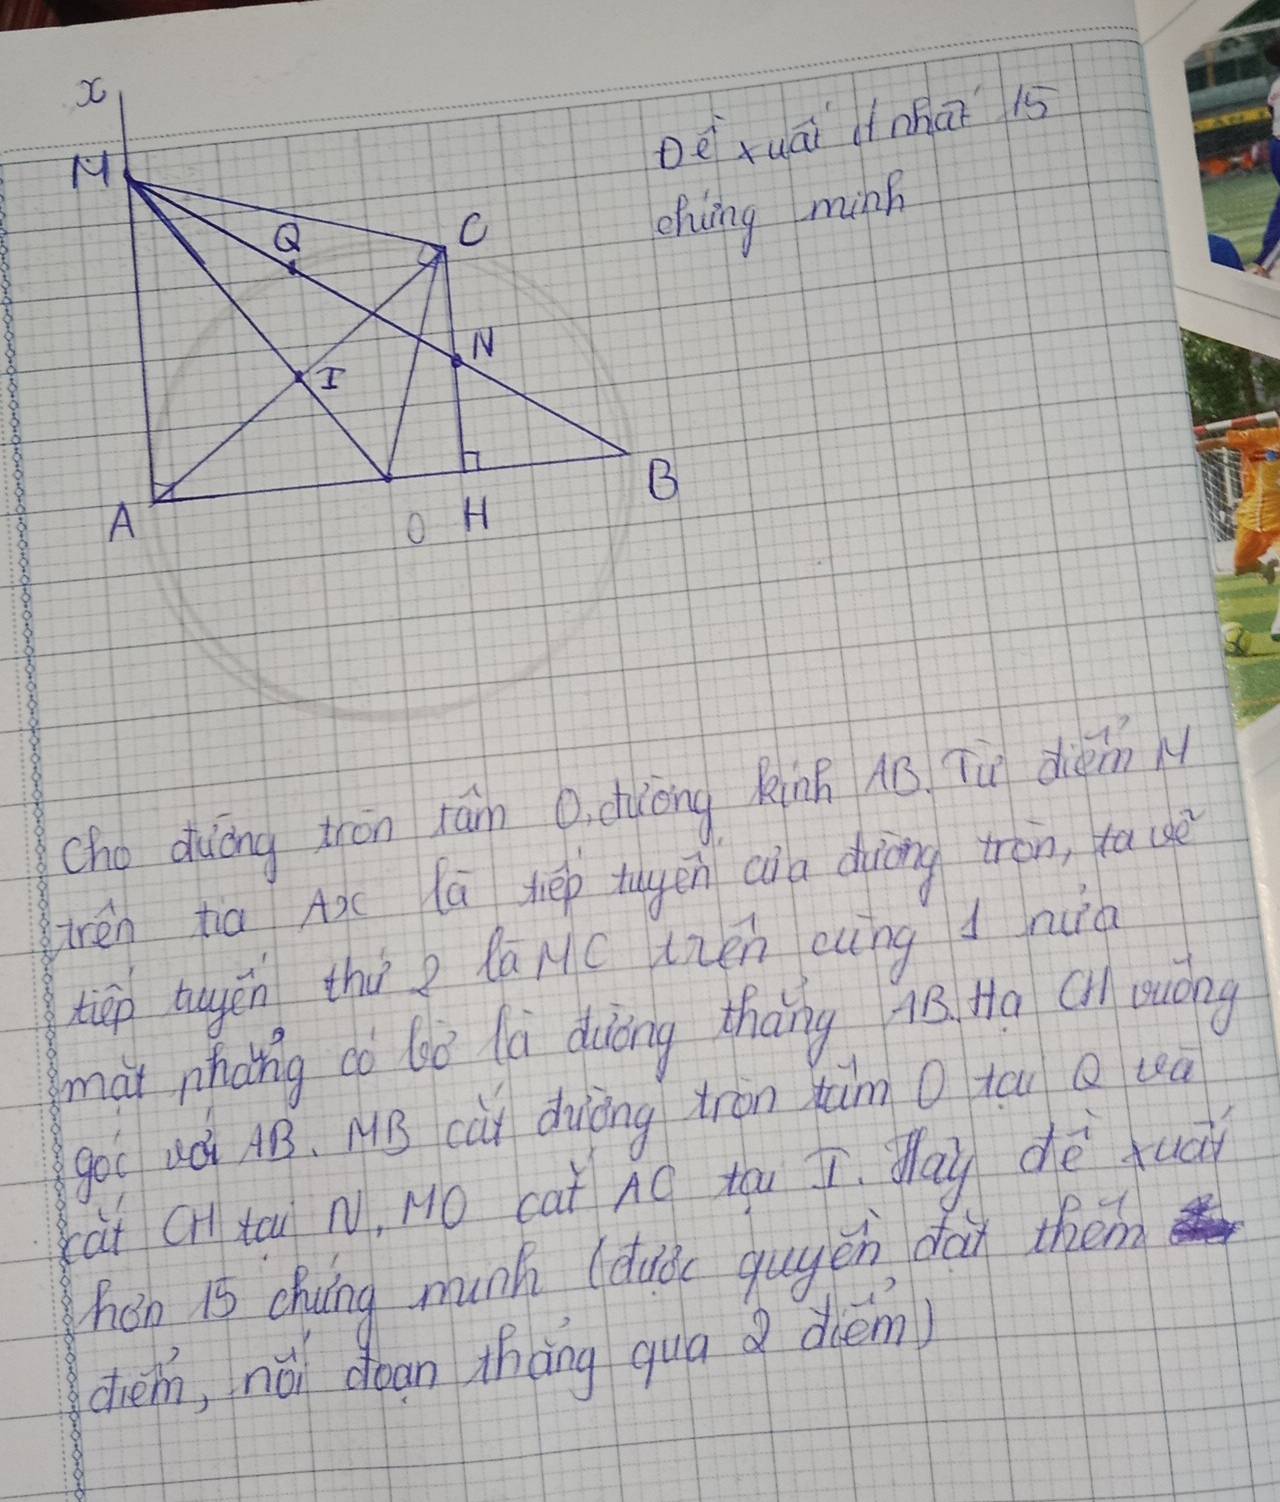 x
M
Đề xuất ít nhất 15
chứng minh
Q
C
N
I
A
O
H
B
Cho đường tròn tâm O, đường kính AB. Từ điểm M
trên tia Ax là tiếp tuyến của đường tròn, ta vẽ
tiếp tuyến thứ 2 là MC trên cùng 1 nửa
mặt phẳng có bờ là đường thẳng AB. Hạ CH vuông
góc với AB. MB cắt đường tròn tâm O tại Q và
cắt CH tại N, MO cắt AC tại I. Hãy đề xuất
hơn 15 chứng minh (được quyền đặt thêm
điểm, nối đoạn thẳng qua 2 điểm)